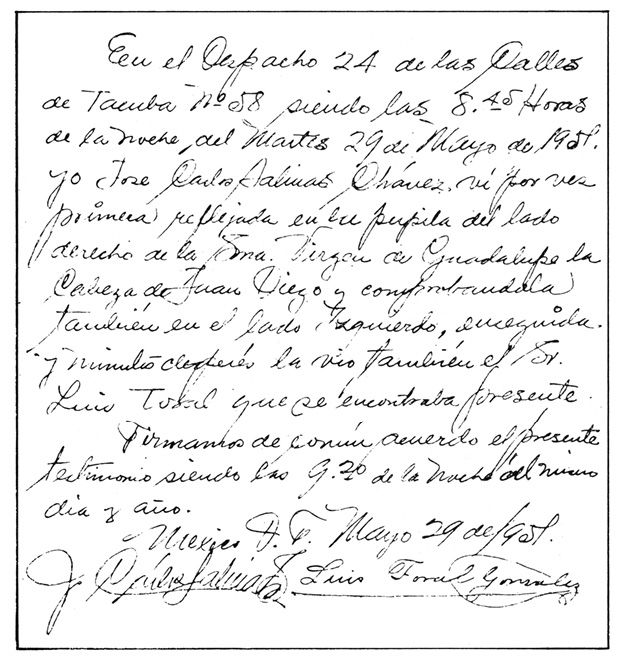 En el Despacho 24 de las Calles
de Tacuba Nº 58 siendo las 8.45 Horas
de la noche, del Martes 29 de Mayo de 1951.
yo José Carlos Salinas Chávez, ví por vez
primera reflejada en la pupila del lado
derecho de la Sma. Virgen de Guadalupe la
Cabeza de Juan Diego y comprobandola
también en el lado Izquierdo, enseguida.
y minutos después la vio también el Sr.
Luis Toral que se encontraba presente.
Firmamos de común acuerdo el presente
testimonio siendo las 9.20 de la Noche del mismo
dia y año.
Mexico D. F. Mayo 29 de 1951.
J. Carlos Salinas Luis Toral González